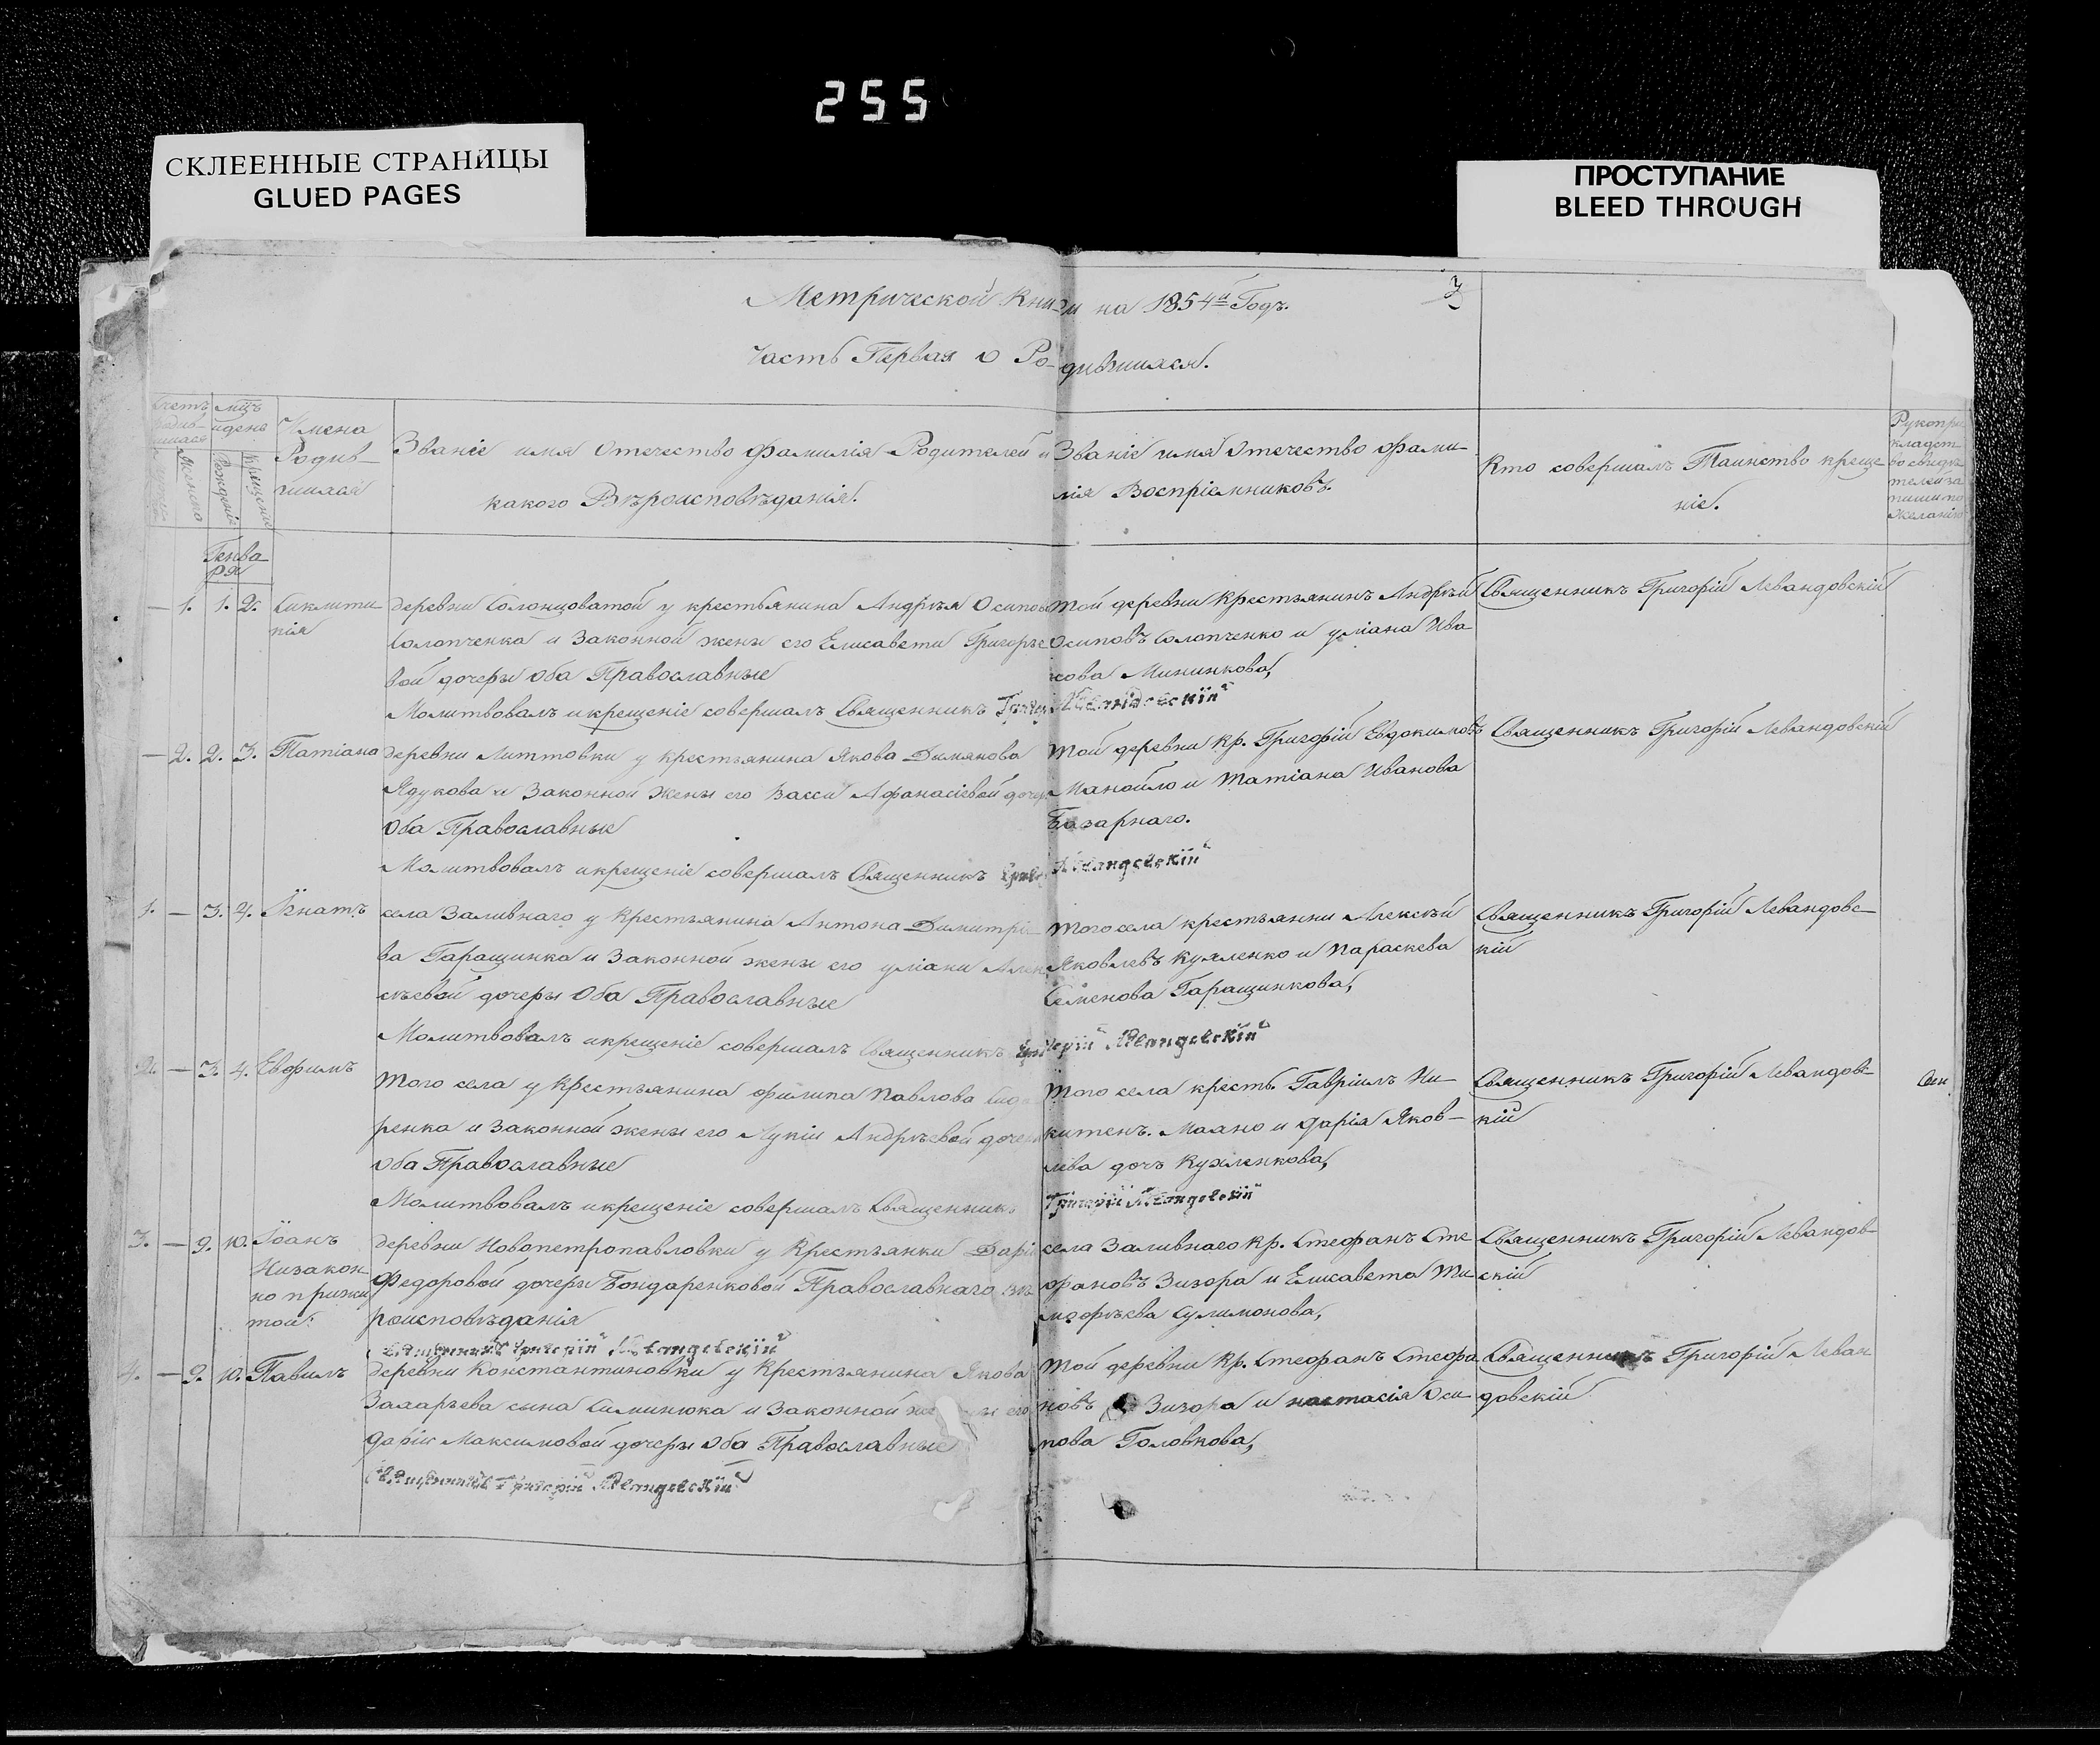 255
СКЛЕЕННЫЕ СТРАНИЦЫ
GLUED PAGES
ПРОСТУПАНИЕ
BLEED THROUGH
Метрической Книги на 1854й Годъ.
Часть Первая о Родившихся.
Имена Родившихся
Званіе имя отечество фамилія Родителей и
какого Вѣроисповѣданія.
Званіе имя отечество фами-
лія Воспріемниковъ.
Кто совершалъ Таинство креще
ніе.
Рукопри
кладст
во свидѣ
телей за
писи по
желанію
Генва
ря
— 1. 1. 2. Сиклити
кія
деревни Солонцоватой у крестьянина Андрѣя Осипова
Солопченка и Законной жены его Елисавети Григорье
вой дочеры Оба Православные
Молитвовалъ и крещеніе совершалъ Священникъ
той деревни Крестьянинъ Андрѣй
Осиповъ Солопченко и уліана Ива
нова Мининкова,
Священникъ Григорій Левандовскій
— 2. 2. 3. Татіана
деревни Литтовки у крестьянина Якова Димянова
Ядукова и Законной жены его Васси Афанасіевой дочеры
Оба Православные
Молитвовалъ и крещеніе совершалъ Священникъ
той деревни Кр. Григорій Евдокимовъ
Манойло и Татіана Иванова
Базарнаго.
Священникъ Григорій Левандовскій
1. — 3. 4. Игнатъ
села Заливнаго у Крестьянина Антона Димитріе
ва Гаращинка и Законной жены его уліани Алек
сѣевой дочеры Оба Православные
Молитвовалъ и крещеніе совершалъ Священникъ Григорій Левандовскій
того села крестьянин Алексѣй
Яковлевъ Куяленко и Параскева
Семенова Гаращинкова,
Священникъ Григорій Левандовс-
кій
2. — 3. 4. Евфимъ
того села у Крестьянина Филипа Павлова Сидо
ренка и Законной жены его Лукіи Андрѣевой дочеры
оба Православные
Молитвовалъ и крещеніе совершалъ Священникъ Григорій Левандовскій
того села кресть. Гавріилъ Ни-
китенъ. и Дарія Яков-
лева дочъ Куяленкова,
Священникъ Григорій Левандовс-
кій
3. — 9. 10. Іоанъ
Низакон
но прижи
той:
деревни Новопетропавловки у Крестьянки Даріи
Федоровой дочеры Бондаренковой Православнаго вѣ
роисповѣданія
Священникъ Григорій Левандовскій
села Заливнаго Кр. Стефанъ Сте
фановъ Зизора и Елисавета Ти
мофѣева Сулимонова,
Священникъ Григорій Левандов-
скій
4. — 9. 10. Павилъ
деревни Константиновки у Крестьянина Якова
Захарьева сына Симинюка и Законной жены его
Даріи Максимовой дочеры Оба Православные
Священникъ Григорій Левандовскій
той деревни Кр. Стефанъ Стефа
новъ Зизора и настасія Оси
пова Головкова,
Священникъ Григорій Леван
довскій